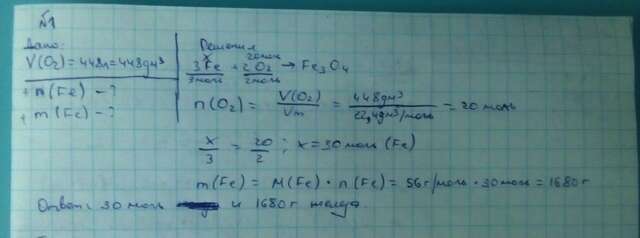 №1
Дано:
V(O₂)=448л=448дм³
n(Fe) - ?
m(Fe) - ?
Решения
x 20моль
3Fe + 2O₂ → Fe₃O₄
3моль 2моль
n(O₂) = V(O₂)/Vm = 448дм³/22,4дм³/моль = 20 моль
x/3 = 20/2 ; x = 30 моль (Fe)
m(Fe) = M(Fe) · n(Fe) = 56г/моль · 30 моль = 1680 г
Ответ: 30 моль и 1680 г железа.